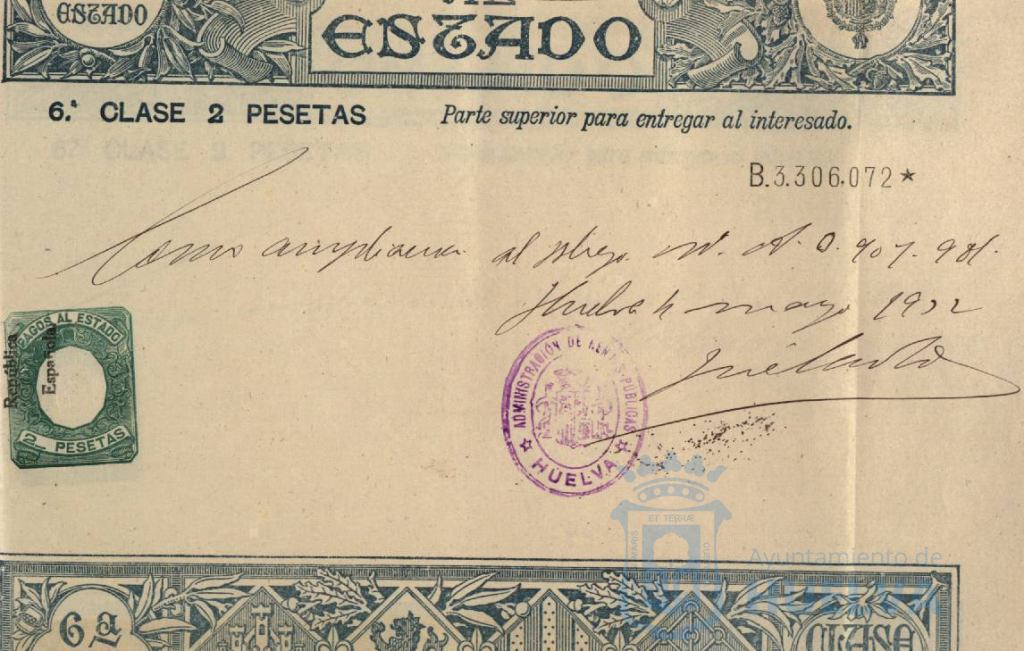 ESTADO
ESTADO
6.ª CLASE 2 PESETAS Parte superior para entregar al interesado.
B.3.306,072★
Como ampliacion al pliego N. A. 0.907.981.
Huelva 4 mayo 1932
PAGOS AL ESTADO
República
Española
2 PESETAS
ADMINISTRACION DE RENTAS PUBLICAS
HUELVA
ET TERRÆ
Ayuntamiento de
HUELVA
6ª CLASE